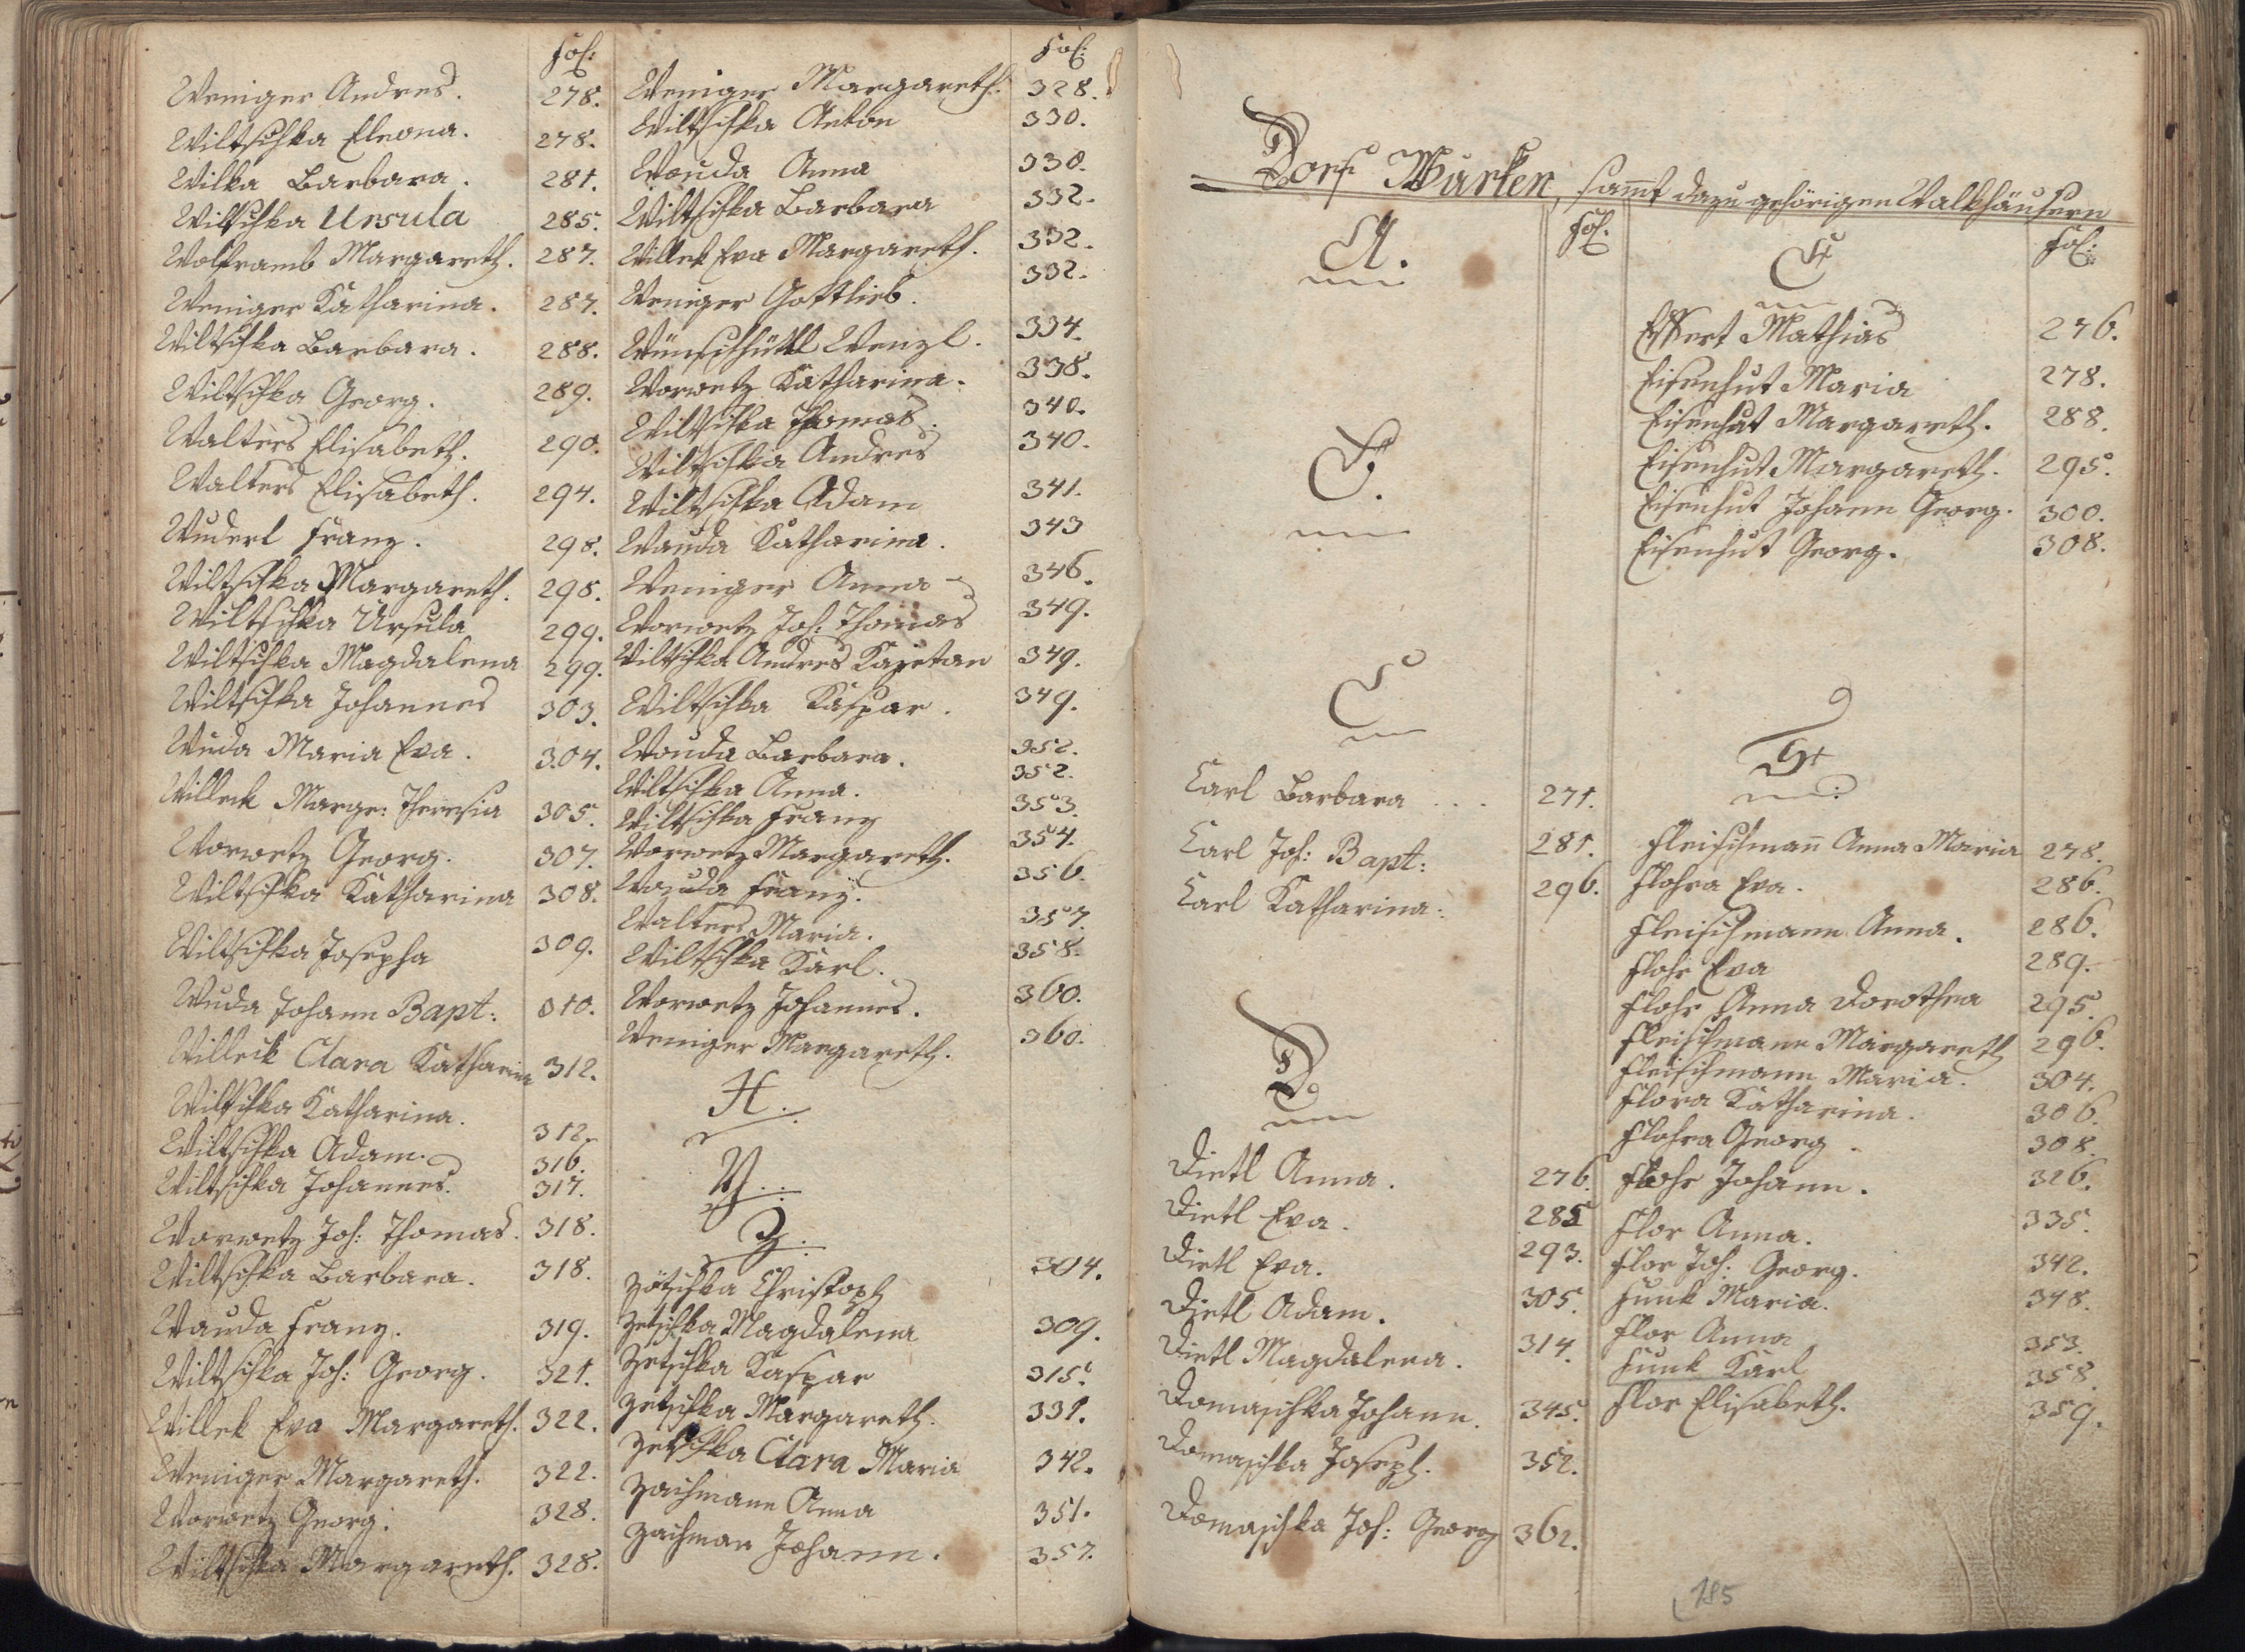 Fol:
Weniger Andres. 278.
Wiltschka Eleona. 278.
Wilka Barbara. 281.
Wiltschka Ursula 285.
Wolframb Margareth. 287.
Weniger Katharina. 287.
Wiltschka Barbara. 288.
Wiltschka Georg. 289.
Walters Elisabeth. 290.
Walters Elisabeth. 294.
Wuderl Franz. 298.
Wiltschka Margareth. 298.
Wiltschka Ursula 299.
Wiltschka Magdalena 299.
Wiltschka Johannes 303.
Wuda Maria Eva. 304.
Willeck Marga: Theresia 305.
Worwetz Georg. 307.
Wiltschka Katharina 308.
Wiltschka Josepha 309.
Wuda Johann Bapt: 310.
Willeck Clara Katharina 312.
Wiltschka Katharina. 312.
Wiltschka Adam. 316.
Wiltschka Johannes. 317.
Worwetz Joh: Thomas. 318.
Wiltschka Barbara. 318.
Wauda Franz. 319.
Wiltschka Joh: Georg. 321.
Willek Eva Margareth. 322.
Weniger Margareth. 322.
Worwetz Georg. 328.
Wiltschka Margareth. 328.
Fol:
Weniger Margareth. 328.
Wiltschka Anton 330.
Wouda Anna 330.
Wiltschka Barbara 332.
Willek Eva Margareth. 332.
Weniger Gottlieb. 332.
Wünschhüttl Wenzl. 334.
Worwetz Katharina. 338.
Wiltschka Thomas. 340.
Wiltschka Andres 340.
Wiltschka Adam 341.
Wauda Katharina. 343
Weniger Anna 346.
Worwetz Joh: Thomas 349.
Wiltschka Andres Kajetan 349.
Wiltschka Kaspar. 349.
Wouda Barbara. 352.
Wiltschka Anna. 352.
Wiltschka Franz 353.
Worwetz Margareth. 354.
Wouda Franz. 356.
Walters Maria. 357.
Wiltschka Karl. 358.
Worwetz Johannes. 360.
Weniger Margareth. 360.
X.
Y.
Z.
Zötschka Christoph 304.
Zetschka Magdalena 309.
Zetschka Kaspar 315.
Zetschka Margareth. 331.
Zetschka Clara Maria 342.
Zaihmann Anna 351.
Zaihman Johann. 357.
Dorf Wurken, sam̄t dazu gehörigen Walkhäusern
A. Fol.
B.
C
Carl Barbara 271.
Carl Joh: Bapt: 281.
Carl Katharina: 296.
D.
Dietl Anna. 276.
Dietl Eva. 285
Dietl Eva. 293.
Dietl Adam. 305.
Dietl Magdalena. 314.
Domaschka Johann. 345.
Domaschka Joseph. 352.
Domaschka Joh: Georg 362.
E Fol:
Effert Mathias 276.
Eisenhut Maria 278.
Eisenhut Margareth. 288.
Eisenhut Margareth. 295.
Eisenhut Johann Georg. 300.
Eisenhut Georg. 308.
F
Fleischman̄ Anna Maria 278.
Flohra Eva. 286.
Fleischmann Anna. 286.
Flohr Eva 289.
Flohr Anna Dorothea 295.
Fleischmann Margareth 296.
Fleischmann Maria. 304.
Flora Katharina. 306.
Flohra Georg 308.
Flohr Johann. 326.
Flor Anna. 335.
Flor Joh: Georg. 342.
Funk Maria. 348.
Flor Anna 353.
Funk Karl 358.
Flor Elisabeth. 359.
185